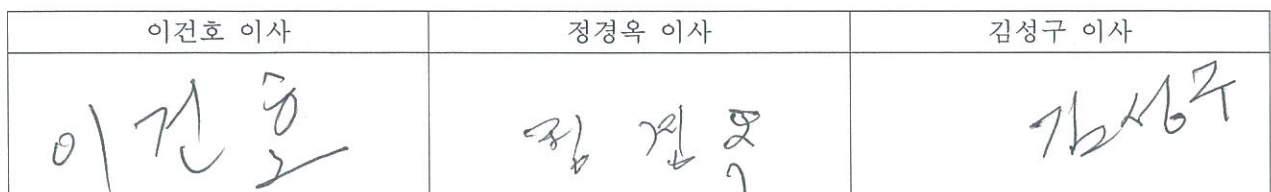 이건호 이사 정경옥 이사 김성구 이사
이건호 정경옥 김성구